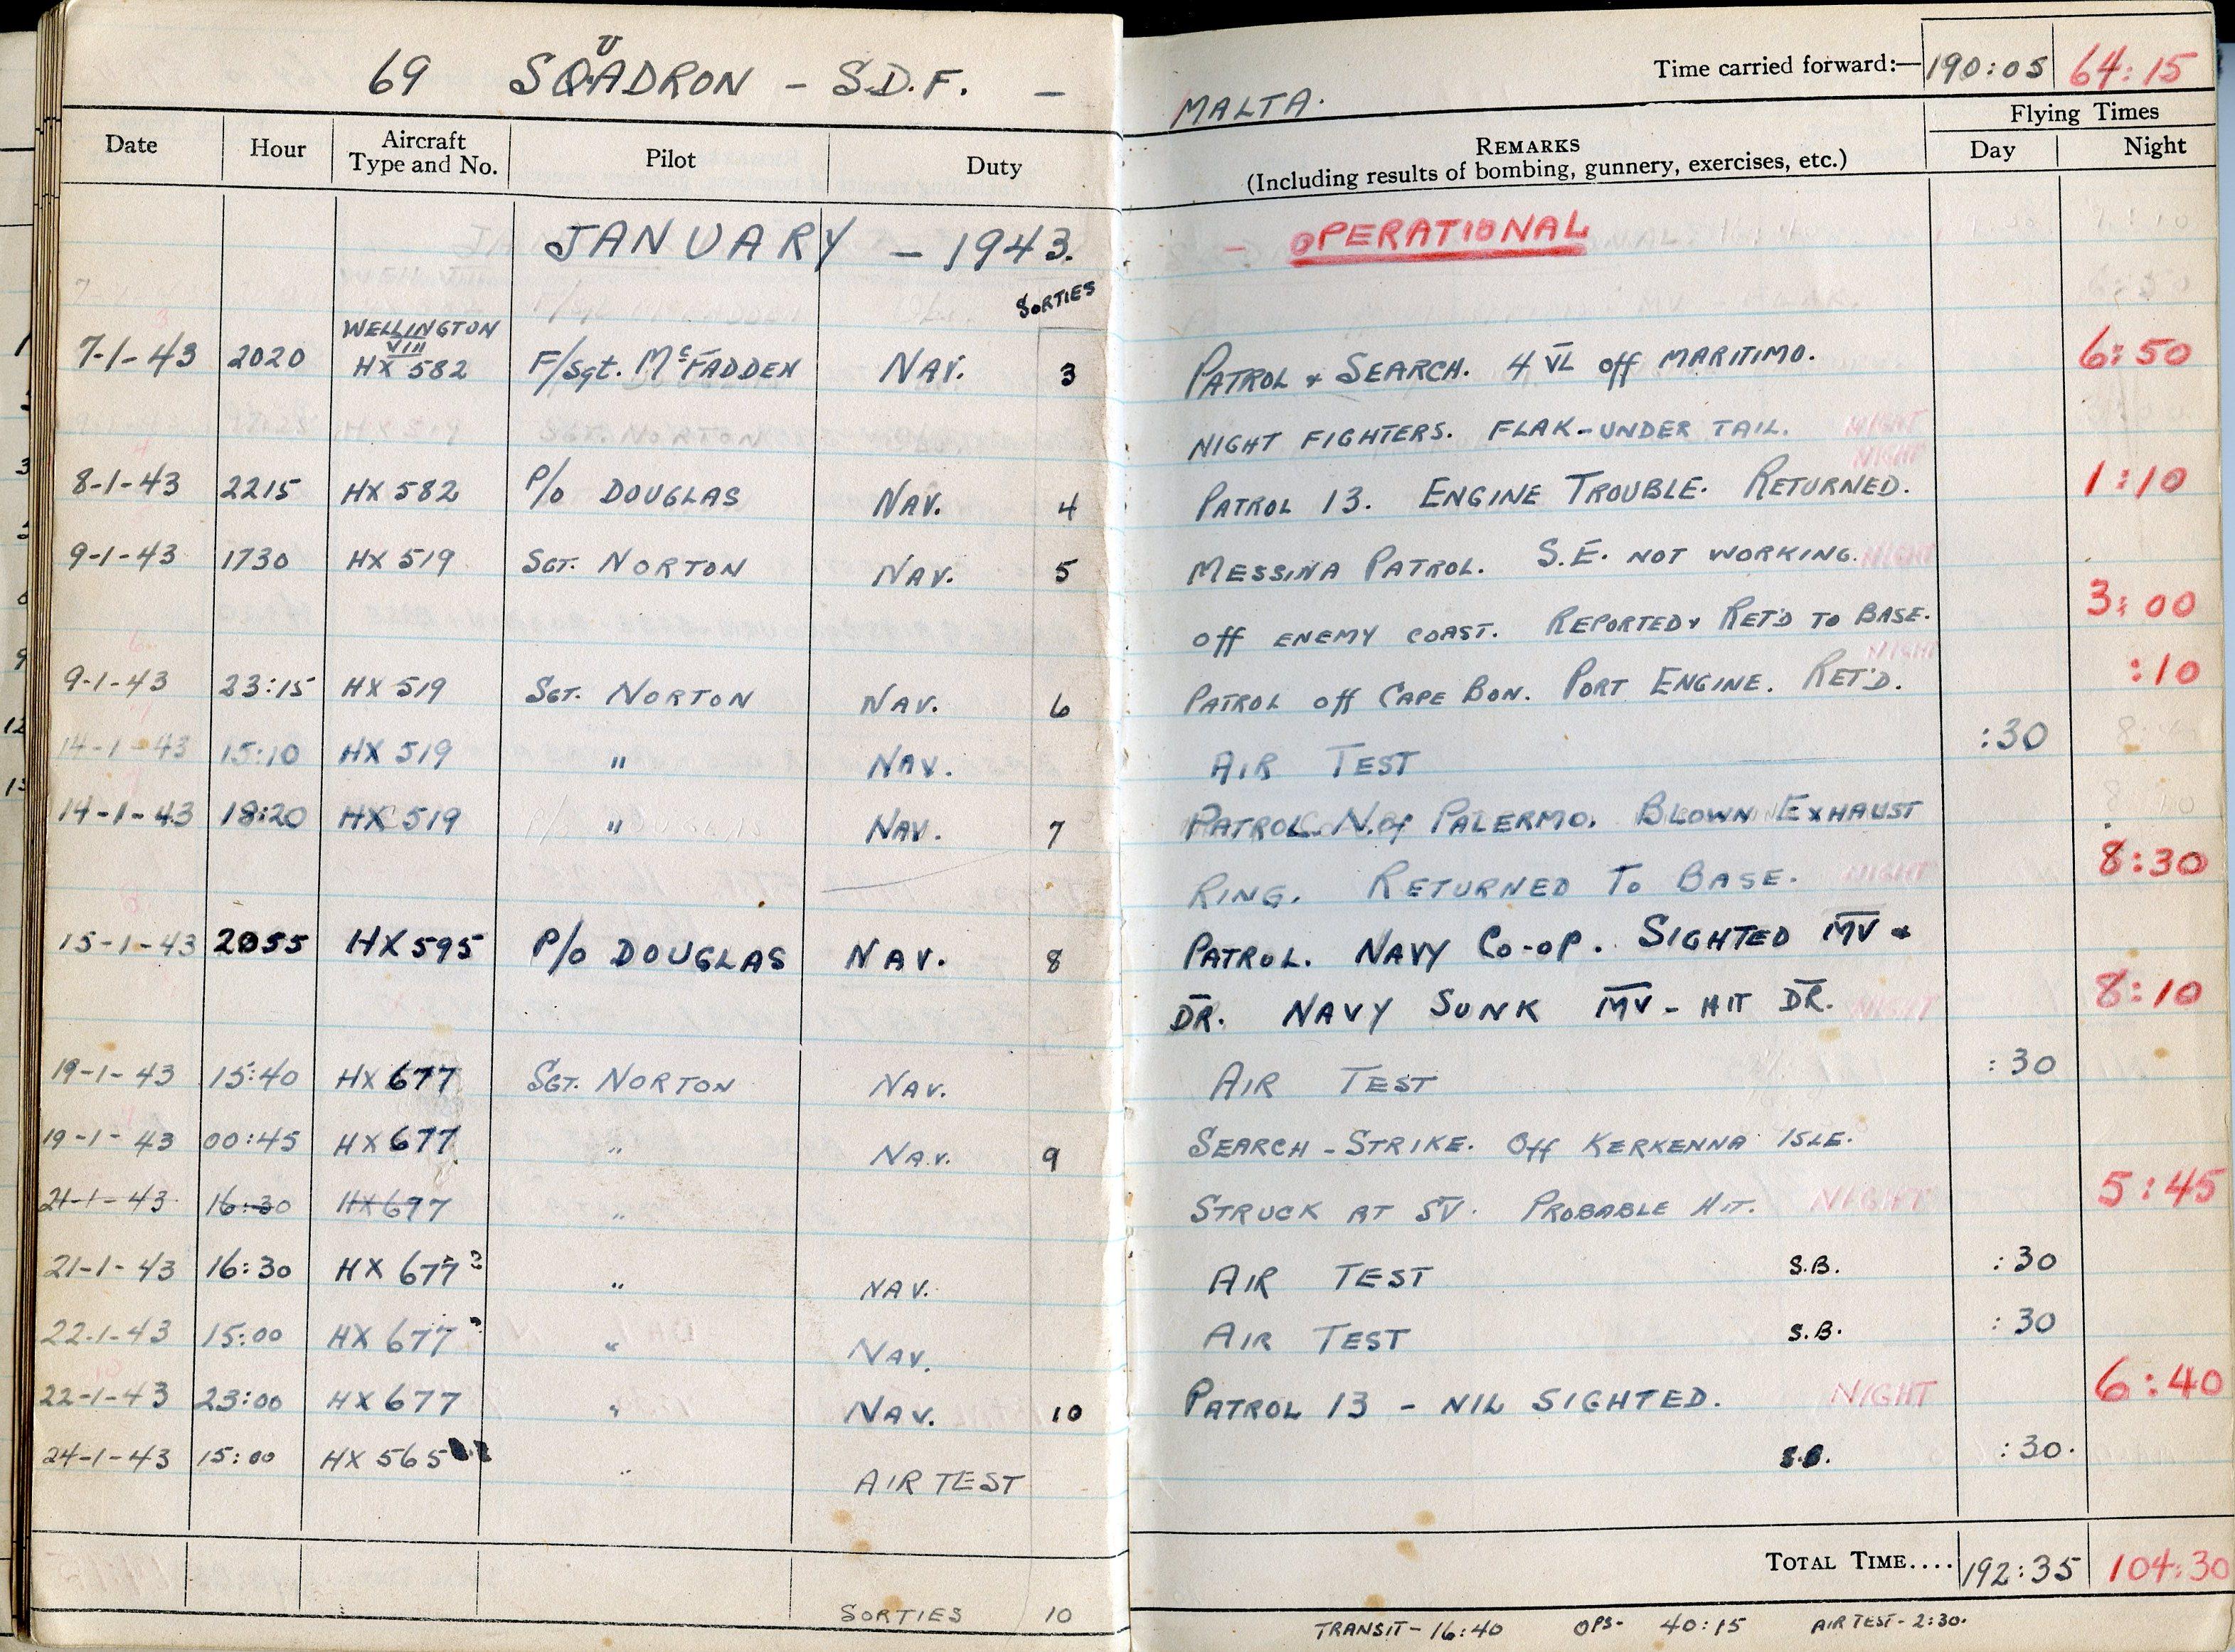 69 SQUADRON - S.D.F. -
Time carried forward:— 190:05 64:15
MALTA.
Date Hour Aircraft Type and No. Pilot Duty REMARKS (Including results of bombing, gunnery, exercises, etc.) Flying Times Day Night
JANUARY - 1943. - OPERATIONAL
SORTIES
WELLINGTON VIII
7-1-43 2020 HX 582 F/Sgt. McFADDEN NAV. 3 PATROL & SEARCH. 4 VL off MARITIMO. 6:50
NIGHT FIGHTERS. FLAK-UNDER TAIL. NIGHT
NIGHT
8-1-43 2215 HX 582 P/O DOUGLAS NAV. 4 PATROL 13. ENGINE TROUBLE. RETURNED. 1:10
9-1-43 1730 HX 519 SGT. NORTON NAV. 5 MESSINA PATROL. S.E. NOT WORKING. NIGHT
off ENEMY COAST. REPORTED & RET'D TO BASE. 3:00
NIGHT
9-1-43 23:15 HX 519 SGT. NORTON NAV. 6 PATROL off CAPE BON. PORT ENGINE. RET'D. :10
14-1-43 15:10 HX 519 " NAV. AIR TEST :30
14-1-43 18:20 HX 519 " NAV. 7 PATROL N. of PALERMO. BLOWN EXHAUST
RING. RETURNED TO BASE. NIGHT 8:30
15-1-43 2055 HX 595 P/O DOUGLAS NAV. 8 PATROL. NAVY CO-OP. SIGHTED MV &
DR. NAVY SUNK MV - HIT DR. NIGHT 8:10
19-1-43 15:40 HX 677 SGT. NORTON NAV. AIR TEST :30
19-1-43 00:45 HX 677 " NAV. 9 SEARCH - STRIKE. Off KERKENNA ISLE.
21-1-43 16:30 HX 677 " STRUCK AT SV. PROBABLE HIT. NIGHT 5:45
21-1-43 16:30 HX 677 ? " NAV. AIR TEST S.B. :30
22-1-43 15:00 HX 677 ? " NAV. AIR TEST S.B. :30
22-1-43 23:00 HX 677 " NAV. 10 PATROL 13 - NIL SIGHTED. NIGHT 6:40
24-1-43 15:00 HX 565 " AIR TEST S.B. :30.
TOTAL TIME.... 192:35 104:30
SORTIES 10 TRANSIT - 16:40 OPS - 40:15 AIR TEST - 2:30.